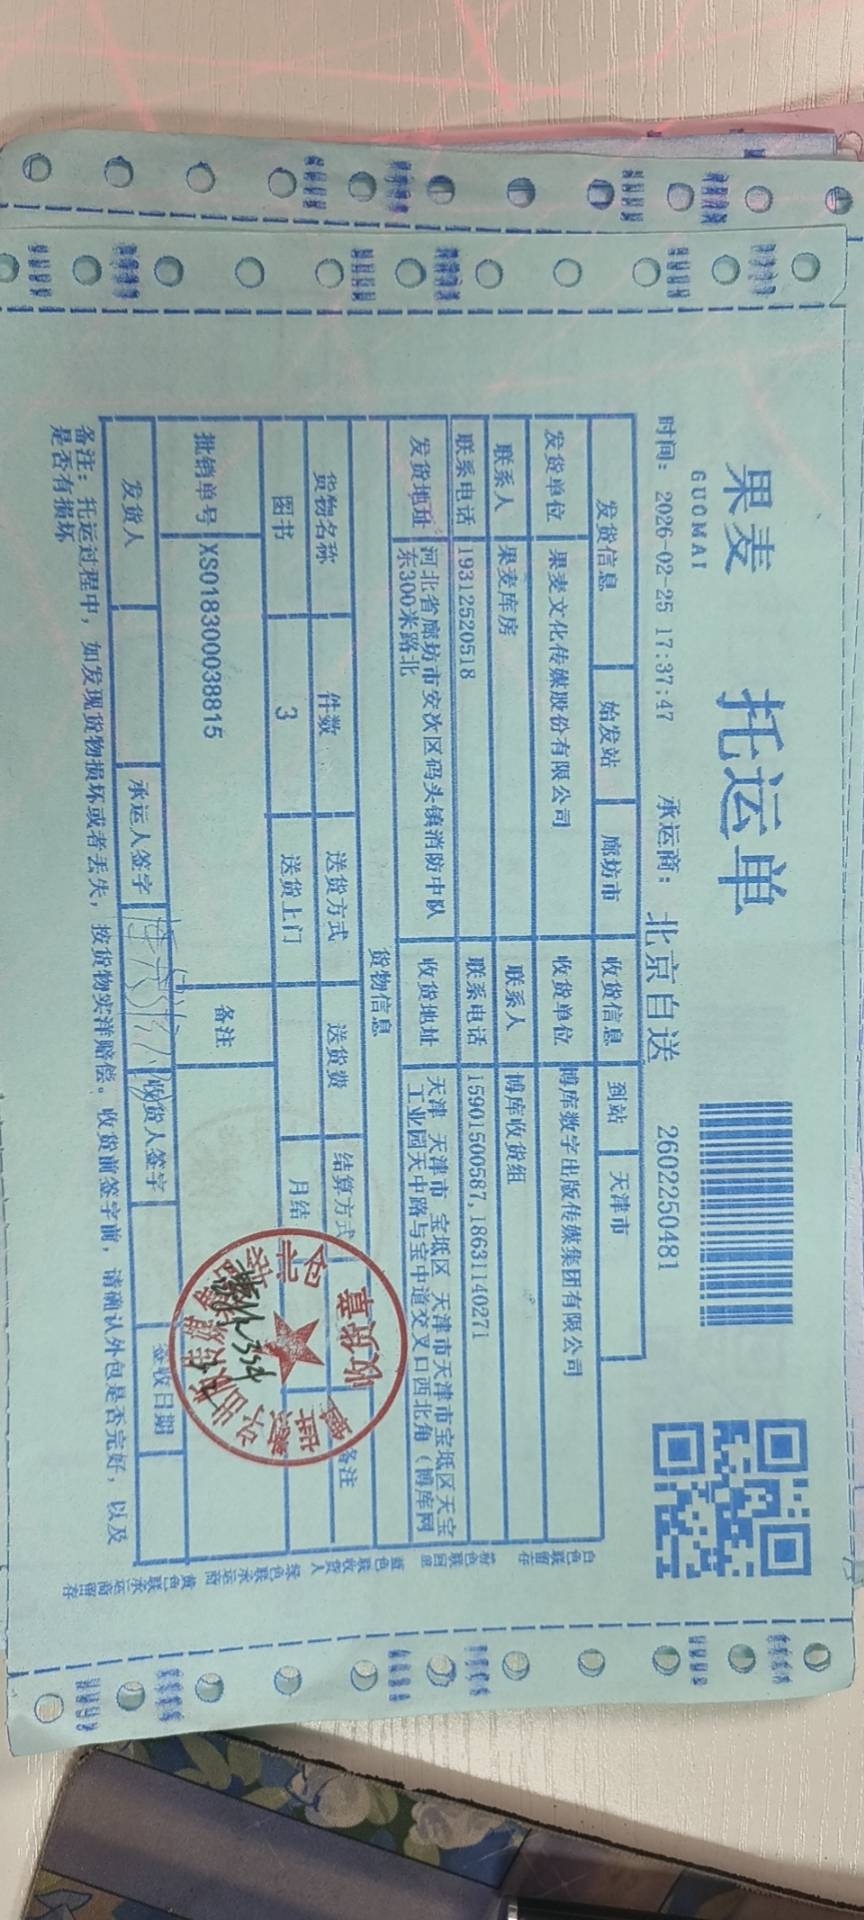 果麦
GUOMAI
托运单
时间：2026-02-25 17:37:47 承运商：北京自送 2602250481
发货信息 始发站 廊坊市 收货信息 到站 天津市
发货单位 果麦文化传媒股份有限公司 收货单位 博库数字出版传媒集团有限公司
联系人 果麦库房 联系人 博库收货组
联系电话 19312520518 联系电话 15901500587,18631140271
发货地址 河北省廊坊市安次区码头镇消防中队东300米路北 收货地址 天津 天津市 宝坻区 天津市天津市宝坻区天宝工业园天中路与宝中道交叉口西北角（博库网
货物信息
货物名称 件数 送货方式 送货费 结算方式 备注
图书 3 送货上门 月结
批销单号 XS018300038815 备注
发货人 承运人签字 收货人签字 签收日期
备注：托运过程中，如发现货物损坏或者丢失，按货物实洋赔偿。收货前签字前，请确认外包是否完好，以及
是否有损坏
白色联留存 粉色联回单 蓝色联收货人 绿色联承运商 黄色联承运商留存
收货章